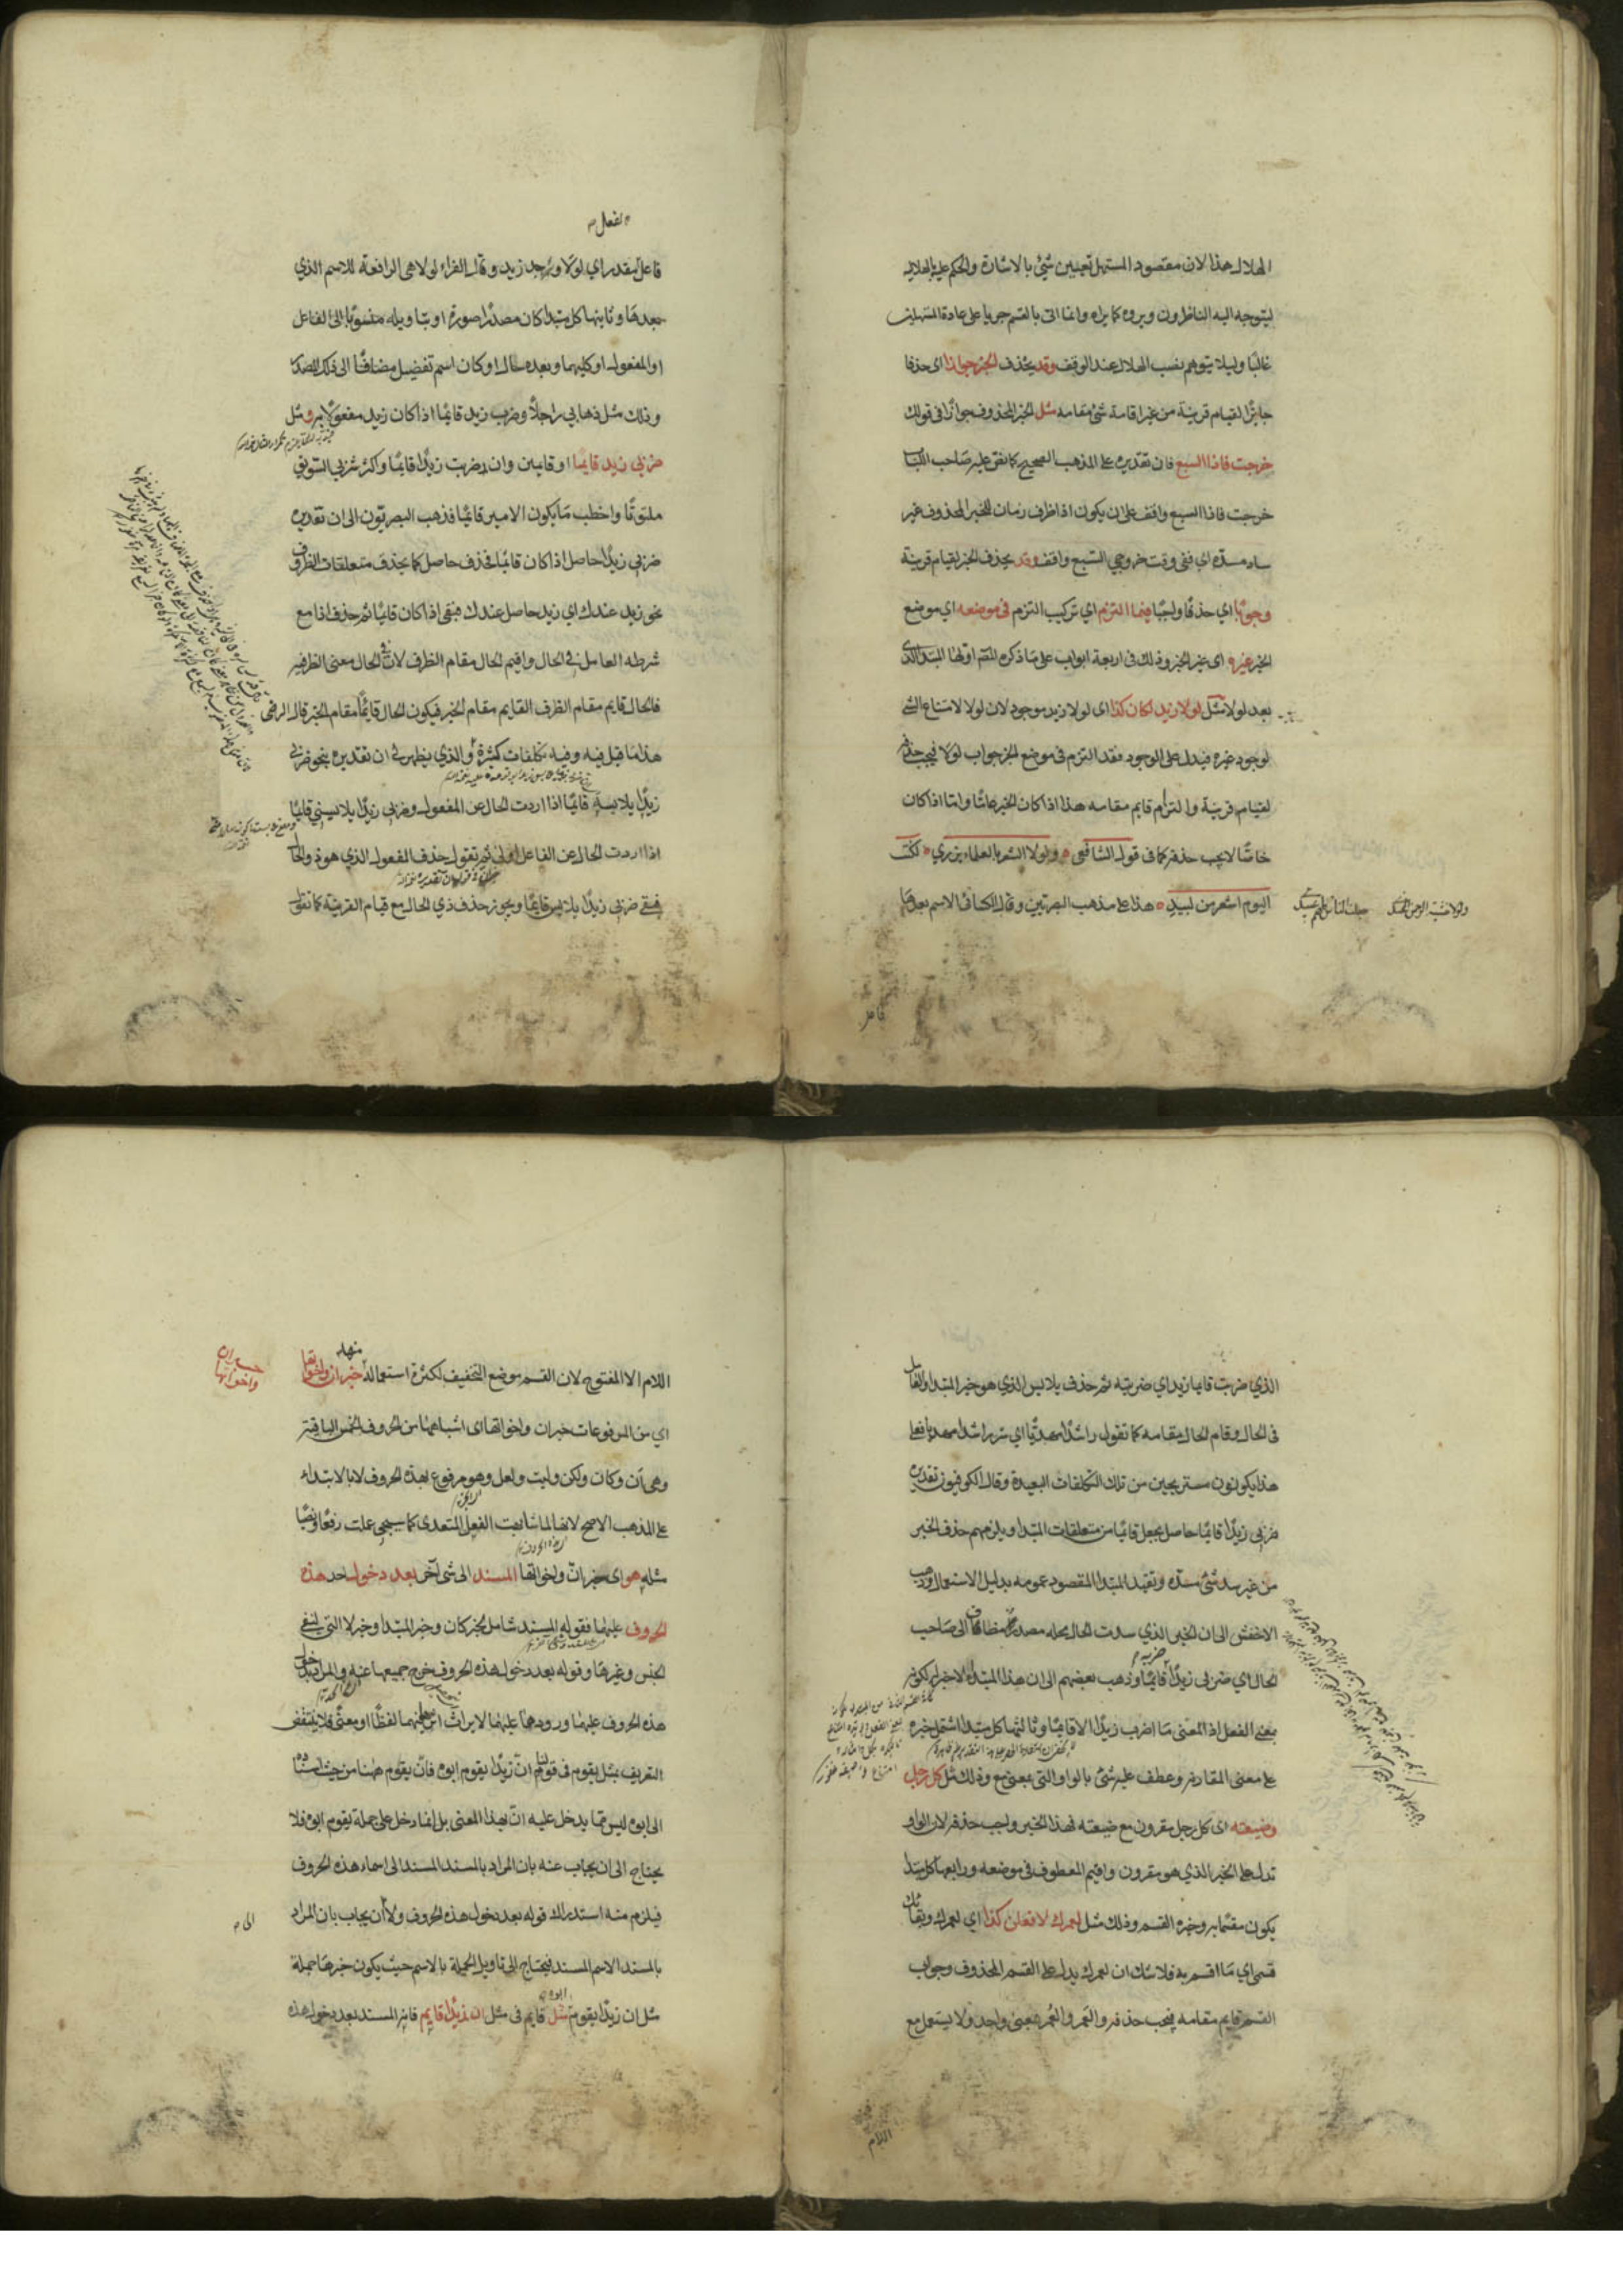 الهلال هذا لان مقصود المستهل تعيين شئ بالاشارة والحكم عليه بالهلالية
ليتوجه اليه الناظرون ويروه كما يراه وانما اتى بالقسم جريا على عادة المستهلين
غالبًا وليلا يتوهم نصب الهلال عند الوقف وقد يحذف الخبر جوازا اى حذفا
جايزًا لقيام قرينة من غير اقامة شئ مقامه مثل الخبر المحذوف جوازًا فى قولك
خرجت فاذا السبع فان تقديره على المذهب الصحيح كما نص عليه صاحب اللباب
خرجت فاذا السبع واقف على ان يكون اذا ظرف زمان للخبر المحذوف غير
ساد مسدّه اى ففى وقت خروجي السبع واقف وقد يحذف الخبر لقيام قرينة
وجوبًا اي حذفًا واجبًا فيما التزم اي تركيب التزم فى موضعه اي موضع
الخبر غيره اى غير الخبر وذلك فى اربعة ابواب على ما ذكره المصنف اولها المبتدا الذى
بعد لولا مثل لولا زيد لكان كذا اى لولا زيد موجود لان لولا لامتناع الشئ
لوجود غيره فيدل على الوجود فقد التزم فى موضع الخبر جواب لولا فيجب حذفه
لقيام قرينة والتزام قايم مقامه هذا اذا كان الخبر عامًا واما اذا كان
خاصًّا لا يجب حذفه كما فى قول الشافعى ولولا الشعر بالعلماء يزري لكنت
اليوم اشعر من لبيد هذا على مذهب البصريين وقال الكسائى الاسم بعدها
فاعل
الفعل
فاعل لمقدر اي لولا وجد زيد وقال الفراء لولا هى الرافعة للاسم الذي
بعدها وثانيها كل مبتدا كان مصدرًا صورة او بتاويله منسوبًا الى الفاعل
او المفعول او كليهما وبعده حال او كان اسم تفضيل مضافًا الى ذلك المصدر
وذلك مثل ذهابى راجلًا وضرب زيد قائمًا اذا كان زيد مفعولًا به ومثل
ضربى زيدا قايمًا او قايمين وان ضربت زيدًا قايمًا واكثر شربي السويق
ملتوتًا واخطب ما يكون الامير قائمًا فذهب البصريون الى ان تقديره
ضربى زيدًا حاصل اذا كان قايمًا فحذف حاصل كما يحذف متعلقات الظروف
نحو زيد عندك اي زيد حاصل عندك فبقى اذا كان قايمًا ثم حذف اذا مع
شرطه العامل فى الحال واقيم الحال مقام الظرف لان فى الحال معنى الظرفية
فالحال قايم مقام الظرف القايم مقام الخبر فيكون الحال قايمًا مقام الخبر قال الرضى
هذا ما قيل فيه وفيه تكلفات كثيرة والذي يظهر لى ان تقديره بنحو ضربى
زيدًا يلابسه قائمًا اذا اردت الحال عن المفعول وضربى زيدًا يلابسنى قايمًا
اذا اردت الحال عن الفاعل اولى ثم تقول حذف المفعول الذي هو ذو الحال
فبقى ضربى زيدًا يلابس قايمًا ويجوز حذف ذي الحال مع قيام القرينة كما تقول
الذي ضربت قايما زيد اي ضربته ثم حذف يلابس الذي هو خبر المبتدا والعامل
فى الحال وقام الحال مقامه كما تقول راشدًا مهديًا اي سر راشدا مهديا فعلى
هذا يكونون مستريحين من تلك التكلفات البعيدة وقال الكوفيون تقديره
ضربى زيدًا قايمًا حاصل بجعل قايمًا من متعلقات المبتدا ويلزمهم حذف الخبر
من غير سد شئ مسدّه وتقييد المبتدا المقصود عمومه بدليل الاستعمال وذهب
الاخفش الى ان الخبر الذي سدت الحال محله مصدر مضاف الى صاحب
الحال اي ضربى زيدًا ضربه قايمًا وذهب بعضهم الى ان هذا المبتدا لا خبر له لكونه
بمعنى الفعل اذ المعنى ما اضرب زيدًا الا قايمًا وثالثها كل مبتدا اشتمل خبره
على معنى المقارنة وعطف عليه شئ بالواو التى بمعنى مع وذلك مثل كل رجل
وضيعته اى كل رجل مقرون مع ضيعته فهذا الخبر واجب حذفه لان الواو
تدل على الخبر الذي هو مقرون واقيم المعطوف فى موضعه ورابعها كل مبتدا
يكون مقسمًا به وخبره القسم وذلك مثل لعمرك لافعلن كذا اي لعمرك وبقاؤك
قسمى اي ما اقسم به فلا شك ان لعمرك يدل على القسم المحذوف وجواب
القسم قايم مقامه فيجب حذفه والعَمر والعُمر بمعنى واحد ولا يستعمل مع
اللام
اللام الا المفتوح لان القسم موضع التخفيف لكثرة استعماله منها خبر ان واخواتها
خبر ان
واخواتها
اي من المرفوعات خبر ان واخواتها اى اشباهها من الحروف الخمس الباقية
وهى أن وكان ولكن وليت ولعل وهو مرفوع بهذه الحروف لا بالابتداء
على المذهب الاصح لانها لما شابهت الفعل المتعدى كما سيجي عملت رفعًا ونصبًا
مثله هو اى خبر ان واخواتها المسند الى شئ آخر بعد دخول احد هذه
الحروف عليهما فقوله المسند شامل لخبر كان وخبر المبتدا وخبر لا التى لنفى
الجنس وغيرها وقوله بعد دخول هذه الحروف خرج جميعها عنه والمراد بدخول
هذه الحروف عليهما ورودها عليهما لايراث اثر فيهما لفظًا او معنًى فلا ينتقض
التعريف بمثل يقوم فى قولنا ان زيدًا يقوم ابوه فان يقوم ههنا من حيث اسناده
الى ابوه ليس مما يدخل عليه انّ بهذا المعنى بل انما دخل على جملة يقوم ابوه فلا
يحتاج الى ان يجاب عنه بان المراد بالمسند المسند الى اسماء هذه الحروف
فيلزم منه استدراك قوله بعد دخول هذه الحروف ولا أن يجاب بان المراد
الى
بالمسند الاسم المسند فيحتاج الى تاويل الجملة بالاسم حيث يكون خبرها جملة
مثل ان زيدًا يقوم ابوه مثل قايم فى مثل ان زيدًا قايم فانه المسند بعد دخول هذه